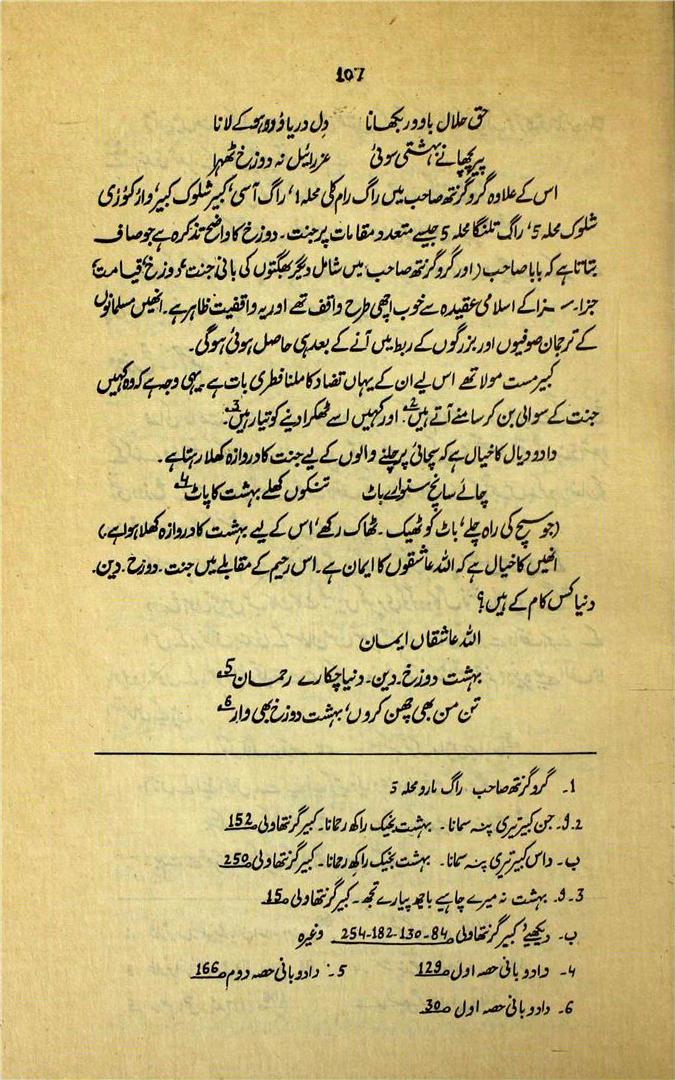 107
حق حلال باوور بکھانا دل دریاؤ دودہو کے لانا
پیر پچھانے بہشتی سوئی عزرائیل نہ دوزخ ٹھہرا
اس کے علاوہ گرو گرنتھ صاحب میں راگ رام کلی محلہ 1، راگ آسی، کبیر شلوک کبیر، وار گئوڑی
شلوک محلہ 5، راگ تلنگا محلہ 5 جیسے متعدد مقامات پر جنت۔ دوزخ کا واضح تذکرہ ہے جو صاف
بتاتا ہے کہ بابا صاحب (اور گرو گرنتھ صاحب میں شامل دیگر بھگتوں کی بانی جنت، دوزخ، قیامت،
جزا۔ سزا کے اسلامی عقیدہ سے خوب اچھی طرح واقف تھے اور یہ واقفیت ظاہر ہے۔ انھیں مسلمانوں
کے ترجمان صوفیوں اور بزرگوں کے ربط میں آنے کے بعد ہی حاصل ہوئی ہوگی۔
کبیر مست مولا تھے اس لیے ان کے یہاں تضاد کا ملنا فطری بات ہے۔ یہی وجہ ہے کہ وہ کہیں
جنت کے سوالی بن کر سامنے آتے ہیں2۔ اور کہیں اسے ٹھکرا دینے کو تیار ہیں3۔
دادو دیال کا خیال ہے کہ سچائی پر چلنے والوں کے لیے جنت کا دروازہ کھلا رہتا ہے۔
چائے سانچ سنوارے باٹ تنکوں کھلے بہشت کا پاٹ4
(جو سچ کی راہ چلے، باٹ کو ٹھیک۔ ٹھاک رکھے، اس کے لیے بہشت کا دروازہ کھلا ہوا ہے۔)
انھیں کا خیال ہے کہ اللہ عاشقوں کا ایمان ہے۔ اس رحیم کے مقابلے میں جنت۔ دوزخ۔ دین۔
دنیا کس کام کے ہیں؟
اللہ عاشقاں ایمان
بہشت دوزخ۔ دین۔ دنیا چکارے رحمان5
تن من بھی چھن کروں، بہشت دوزخ بھی وار6
1۔ گرو گرنتھ صاحب راگ مارو محلہ 5
2۔ و۔ جن کبیر تیری پنہ سمانا۔ بہشت نجیک راکھ رحمانا۔ کبیر گرنتھاولی ص152
ب۔ داس کبیر تیری پنہ سمانا۔ بہشت نجیک راکھ رحمانا۔ کبیر گرنتھاولی ص250
3۔ و۔ بہشت نہ میرے چاہیے باجھ پیارے تجھ۔ کبیر گرنتھاولی ص15
ب۔ دیکھیے، کبیر گرنتھاولی ص84-130-182-254 وغیرہ
4۔ دادو بانی حصہ اول ص129 5۔ دادو بانی حصہ دوم ص166
6۔ دادو بانی حصہ اول ص30